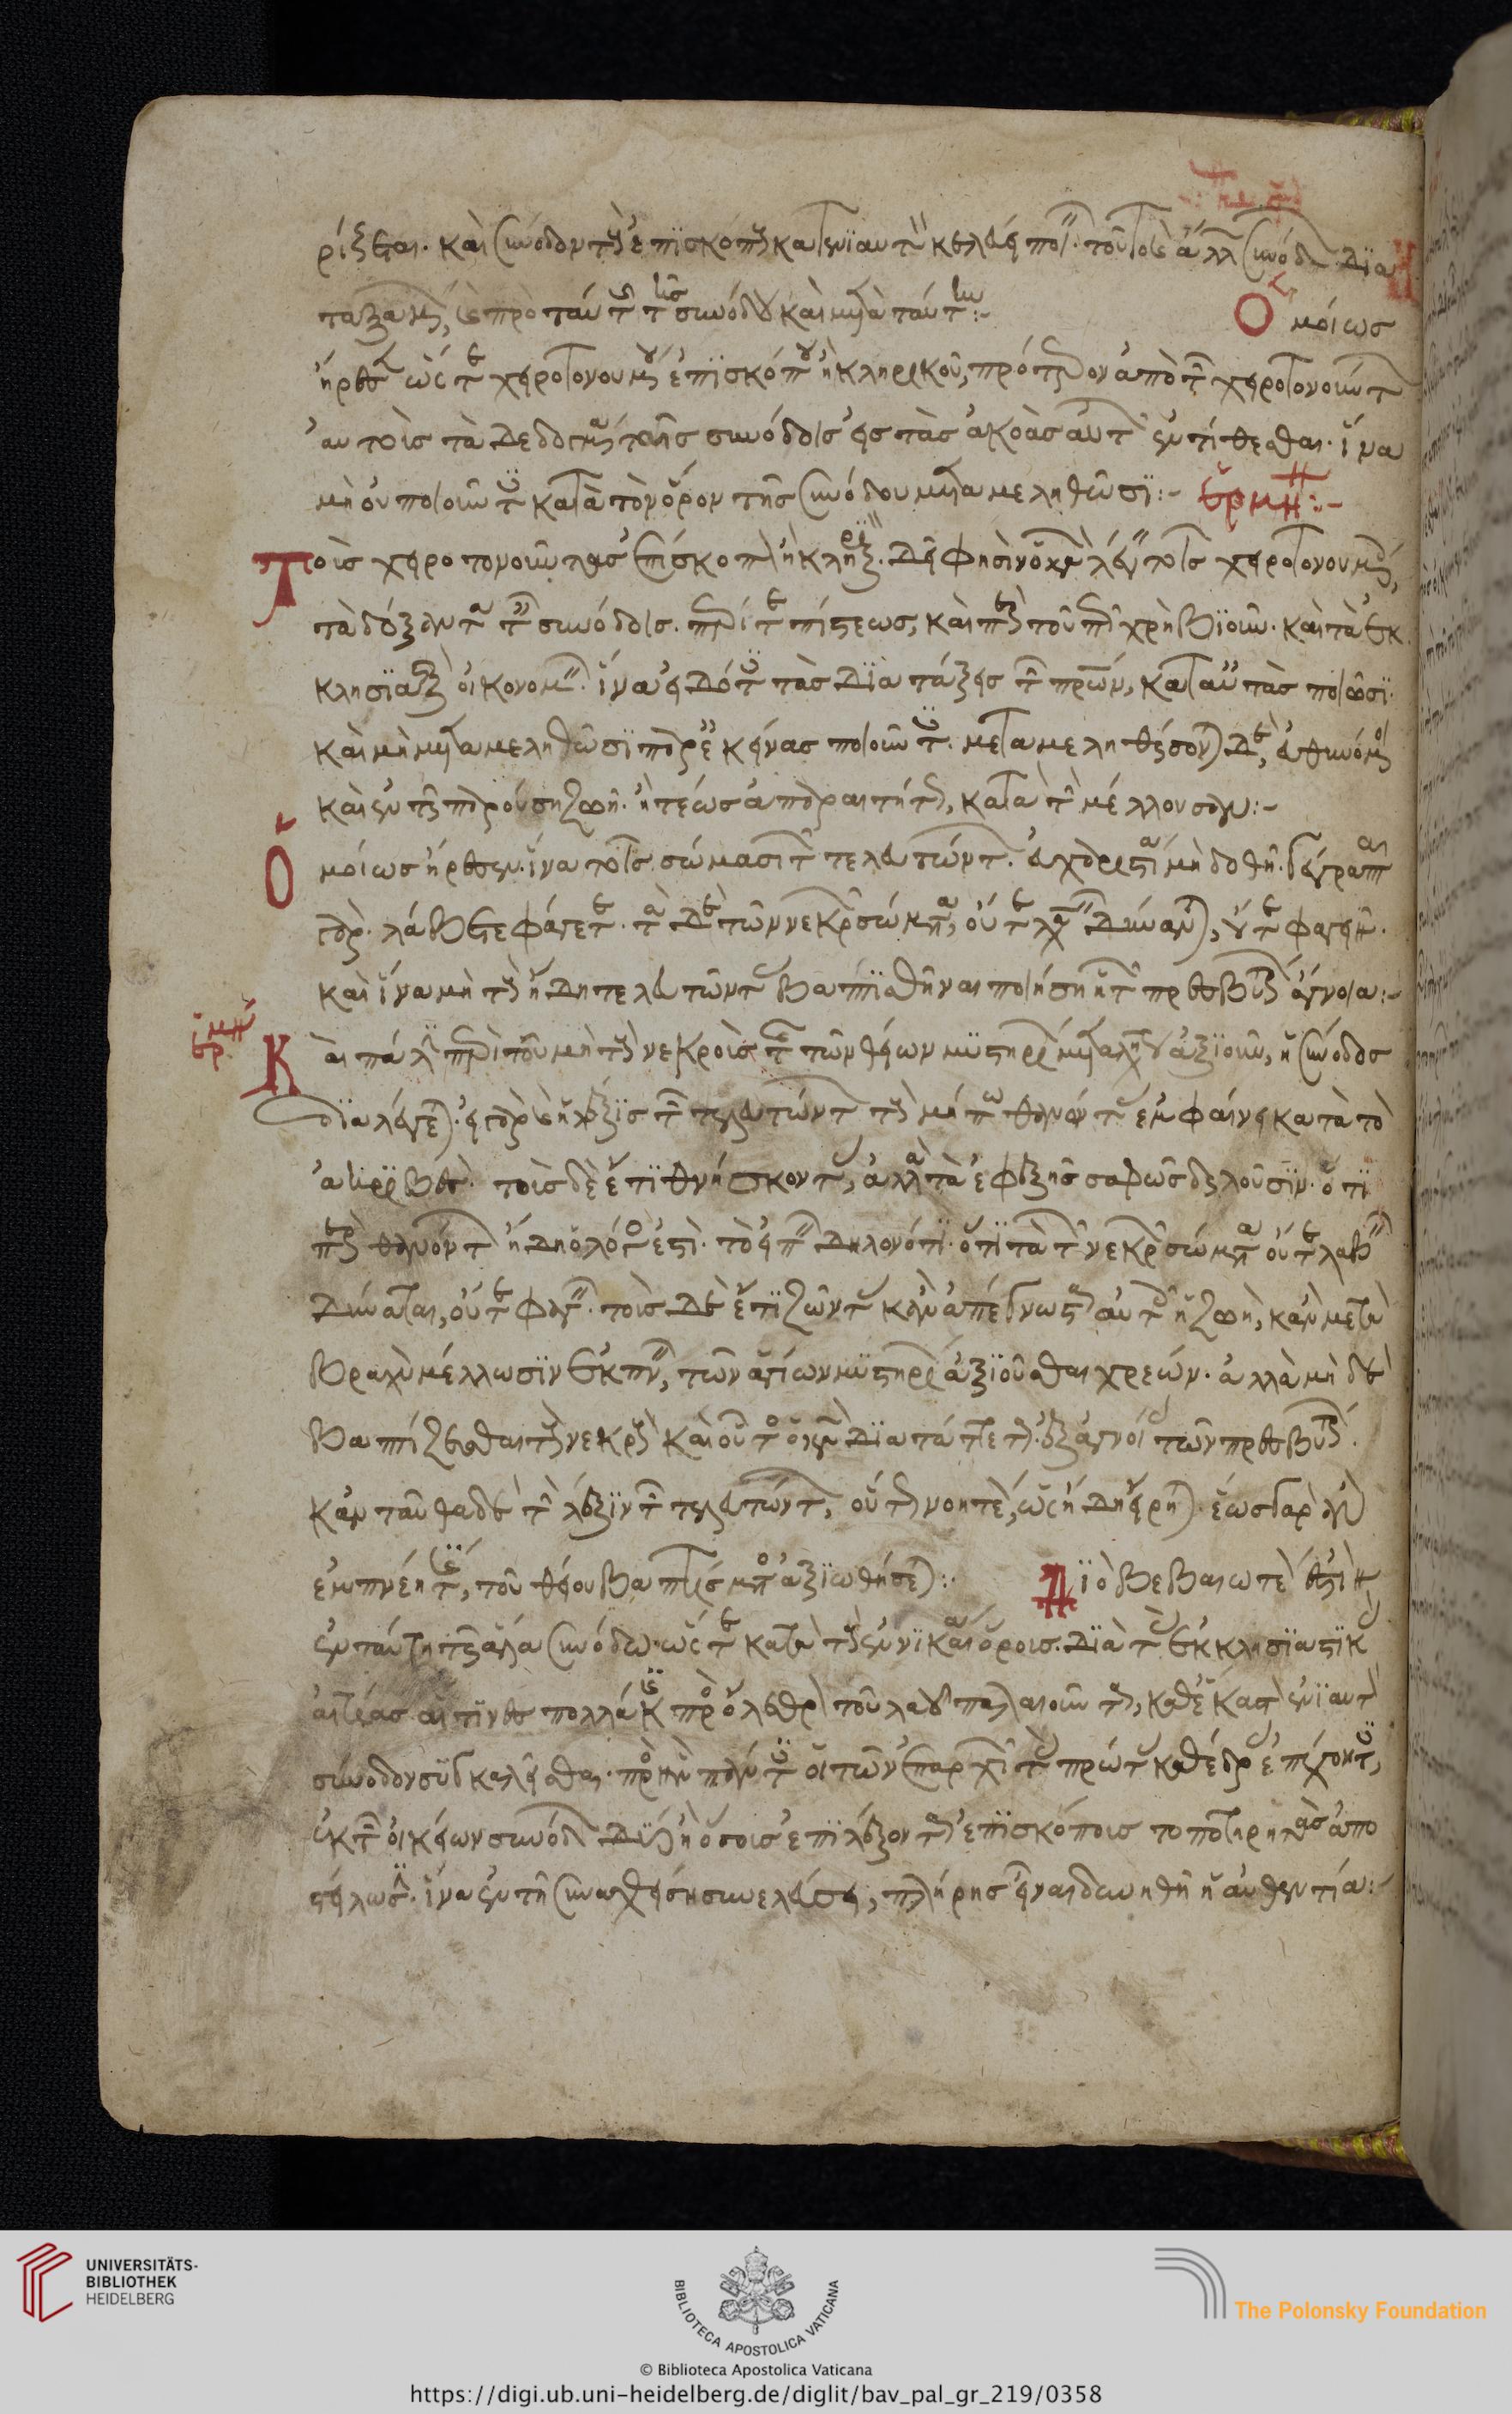 ρίζεται. καὶ σύνοδον τῶν ἐπισκόπων κατ' ἐνιαυτὸν κελεύει ποιεῖν. τοῦτο δὲ καὶ ἄλλαι σύνοδοι δια
ταξάμεναι, καὶ πρὸ ταύτης τῆς συνόδου καὶ μετὰ ταύτην:- Ὁμοίως
ἤρεσεν ὥστε χειροτονουμένου ἐπισκόπου ἢ κληρικοῦ, πρότερον ἀπὸ τῶν χειροτονούντων
αὐτοὺς τὰ δεδογμένα ταῖς συνόδοις εἰς τὰς ἀκοὰς αὐτῶν ἐντίθεσθαι. ἵνα
μὴ ποιοῦντες κατὰ τὸν ὅρον τῆς συνόδου μεταμεληθῶσι:- ἑρμη:-
Τοὺς χειροτονοῦντας ἐπίσκοπον ἢ κληρικὸν. δεῖ φησὶν ὁ κανὼν λέγειν τοῖς χειροτονουμένοις,
τὰ δόξαντα ταῖς συνόδοις. περί τε πίστεως, καὶ περὶ τοῦ πῶς χρὴ βιοῦν. καὶ τὰ ἐκ
κλησιαστικὰ οἰκονομεῖν. ἵνα εἰδότες τὰς διατάξεις τῶν πατέρων, κατ' αὐτὰς ποιῶσι.
καὶ μὴ μεταμεληθῶσι παρ' ἐκείνας ποιοῦντες. μεταμεληθήσονται δὲ, εὐθυνόμενοι
καὶ ἐν τῇ παρούσῃ ζωῇ. ἢ τέως ἀπαραιτήτως, κατὰ τὴν μέλλουσαν:-
Ὁμοίως ἤρεσεν. ἵνα τοῖς σώμασι τῶν τελευτώντων. εὐχαριστία μὴ δοθῇ. γέγραπται
γάρ. λάβετε φάγετε. τὰ δὲ τῶν νεκρῶν σώματα, οὔτε λαβεῖν δύναται, οὔτε φαγεῖν.
καὶ ἵνα μὴ τοὺς ἤδη τελευτῶντας βαπτισθῆναι ποιήσῃ ἡ τῶν πρεσβυτέρων ἄγνοια:-
ἑρμη Καὶ πάλιν περὶ τοῦ μὴ τοὺς νεκροὺς τῆς τῶν θείων μυστηρίων μεταλήψεως ἀξιοῦν, ἡ σύνοδος
διαλέγεται. εἰ γὰρ καὶ ἡ λέξις τῶν τελευτώντων τοὺς μήπω θανόντας ἐμφαίνει κατὰ τὸ
ἀκριβές. τοὺς δὲ ἔτι θνήσκοντας, ἀλλὰ τὰ ἐφεξῆς σαφῶς δηλοῦσιν. ὅτι
περὶ θανόντων ἤδη ὁ λόγος ἐστί. τὸ εἰπεῖν δηλονότι. ὅτι τὰ τῶν νεκρῶν σώματα οὔτε λαβεῖν
δύναται, οὔτε φαγεῖν. τοὺς δὲ ἔτι ζῶντας κἂν ἀπέγνωσται αὐτῶν ἡ ζωὴ, κἂν μετὰ
βραχὺ μέλλωσιν ἐκπνεῖν, τῶν ἁγίων μυστηρίων ἀξιοῦσθαι χρεών. ἀλλὰ μὴ δὲ
βαπτίζεσθαι τοὺς νεκροὺς καὶ οὗτος ὁ κανὼν διατάττεται. ἐξ ἀγνοίας τῶν πρεσβυτέρων.
κἀνταῦθα δὲ τὴν λέξιν τῶν τελευτώντων, οὕτω νοητέον, ὡς ἤδη εἴρηται. ἕως γὰρ ἂν
ἐμπνέῃ τις, τοῦ θείου βαπτίσματος ἀξιωθήσεται:- Διὸ βεβαιωτέον ἐστὶν
ἐν ταύτῃ τῇ ἁγίᾳ συνόδῳ. ὥστε κατὰ τοὺς ἐν νικαίᾳ ὅρους. διὰ τὰς ἐκκλησιαστικὰς
αἰτίας αἵτινες πολλάκις πρὸς ὄλεθρον τοῦ λαοῦ παλαιοῦνται, καθ' ἕκαστον ἐνιαυτὸν
σύνοδον συγκαλεῖσθαι. πρὸς ἣν πάντες οἱ τῶν ἐπαρχιῶν τὰς πρώτας καθέδρας ἐπέχοντες,
ἐκ τῶν οἰκείων συνόδων δύο ἢ ὅσους ἐπιλέξονται ἐπισκόπους τοποτηρητὰς ἀπο
στείλωσι. ἵνα ἐν τῇ συναχθείσῃ συνελεύσει, πλήρης εἶναι δυνηθῇ ἡ αὐθεντία:-
UNIVERSITÄTS-
BIBLIOTHEK
HEIDELBERG
BIBLIOTECA APOSTOLICA VATICANA
The Polonsky Foundation
© Biblioteca Apostolica Vaticana
https://digi.ub.uni-heidelberg.de/diglit/bav_pal_gr_219/0358